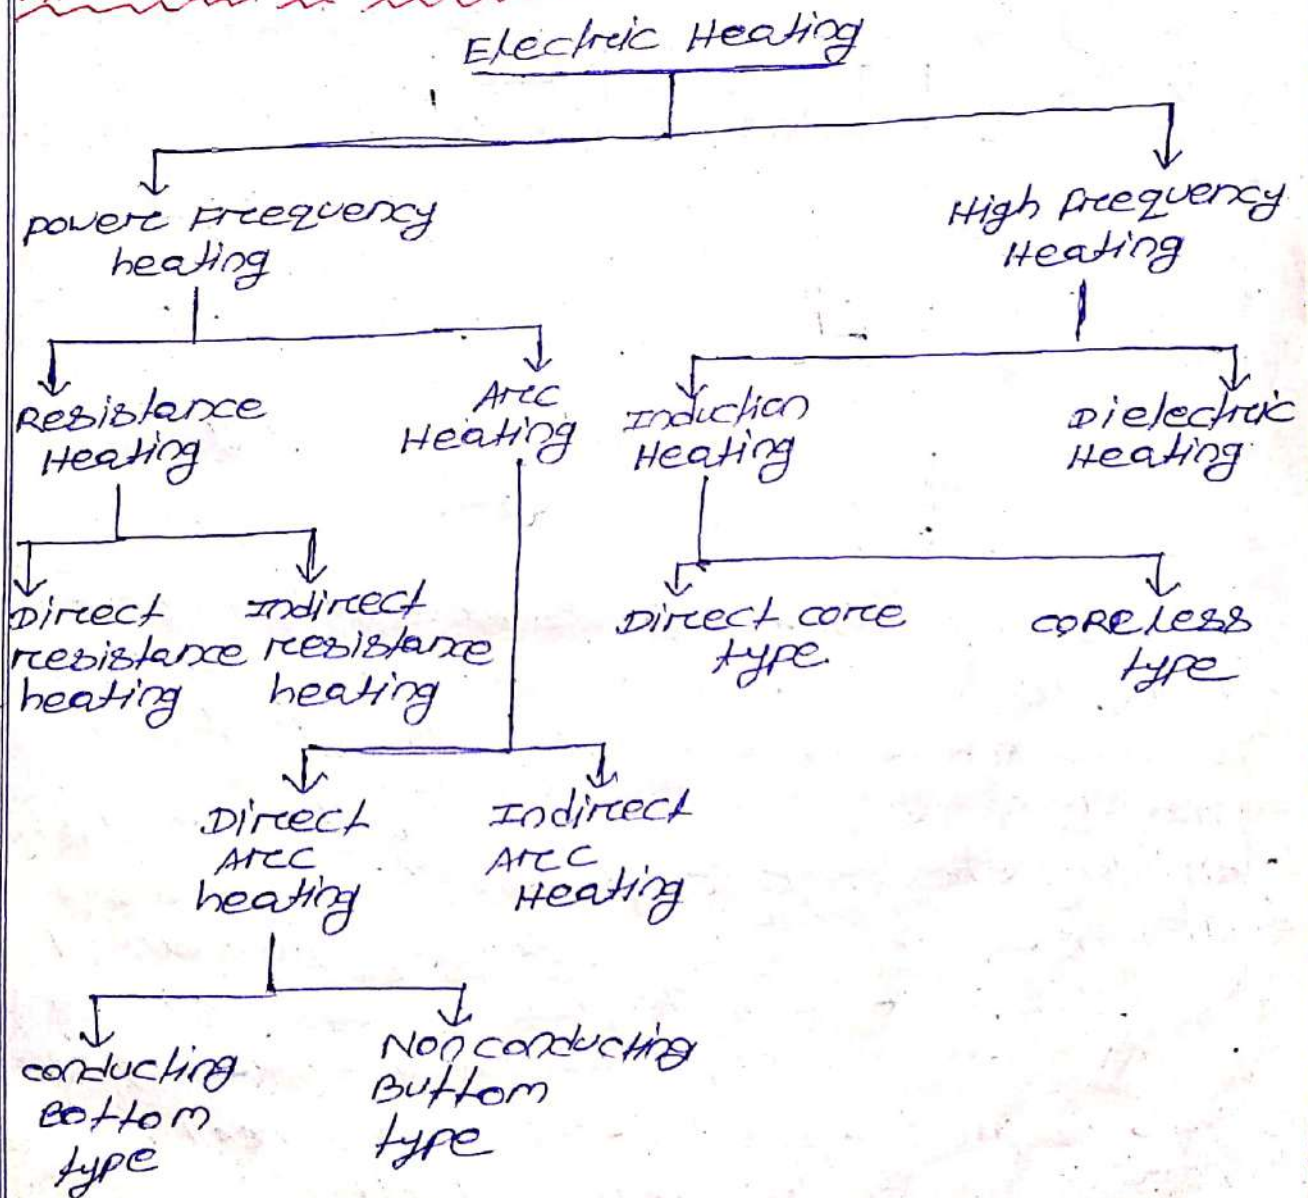 Electric Heating
Power Frequency
heating
High frequency
Heating
Resistance
Heating
Arc
Heating
Induction
Heating
Dielectric
Heating
Direct
resistance
heating
Indirect
resistance
heating
Direct core
type.
CORELESS
type
Direct
Arc
heating
Indirect
Arc
Heating
conducting
Bottom
type
Non conducting
Buttom
type